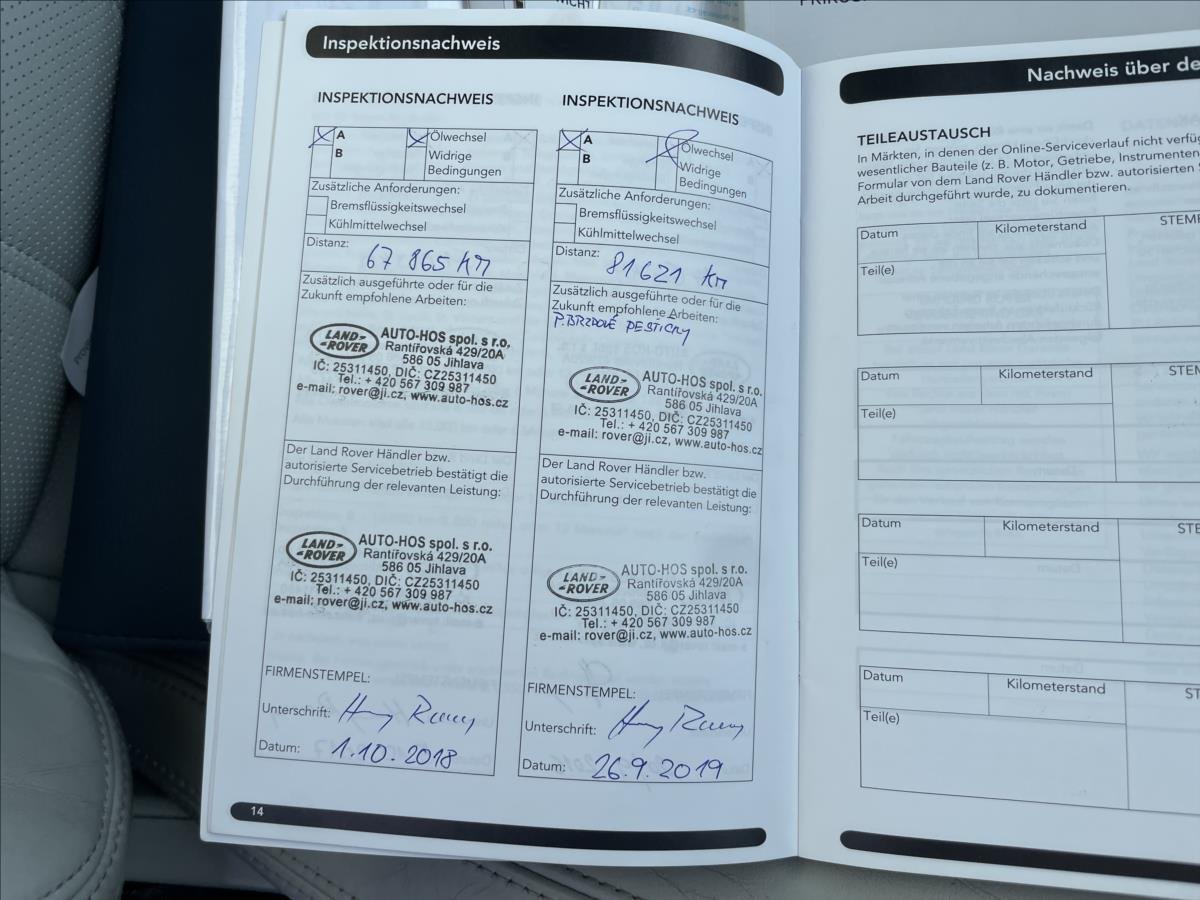 NICHT
Inspektionsnachweis
INSPEKTIONSNACHWEIS
A
Ölwechsel
B
Widrige
Bedingungen
Zusätzliche Anforderungen:
Bremsflüssigkeitswechsel
Kühlmittelwechsel
Distanz:
67 865 KM
Zusätzlich ausgeführte oder für die
Zukunft empfohlene Arbeiten:
LAND-
-ROVER
AUTO-HOS spol. s r.o.
Rantířovská 429/20A
586 05 Jihlava
IČ: 25311450, DIČ: CZ25311450
Tel.: + 420 567 309 987
e-mail: rover@ji.cz, www.auto-hos.cz
Der Land Rover Händler bzw.
autorisierte Servicebetrieb bestätigt die
Durchführung der relevanten Leistung:
LAND-
-ROVER
AUTO-HOS spol. s r.o.
Rantířovská 429/20A
586 05 Jihlava
IČ: 25311450, DIČ: CZ25311450
Tel.: + 420 567 309 987
e-mail: rover@ji.cz, www.auto-hos.cz
FIRMENSTEMPEL:
Unterschrift:
Datum: 1.10.2018
INSPEKTIONSNACHWEIS
A
Ölwechsel
B
Widrige
Bedingungen
Zusätzliche Anforderungen:
Bremsflüssigkeitswechsel
Kühlmittelwechsel
Distanz:
81621 KM
Zusätzlich ausgeführte oder für die
Zukunft empfohlene Arbeiten:
P. BRZDOVÉ DESTIČKY
LAND-
-ROVER
AUTO-HOS spol. s r.o.
Rantířovská 429/20A
586 05 Jihlava
IČ: 25311450, DIČ: CZ25311450
Tel.: + 420 567 309 987
e-mail: rover@ji.cz, www.auto-hos.cz
Der Land Rover Händler bzw.
autorisierte Servicebetrieb bestätigt die
Durchführung der relevanten Leistung:
LAND-
-ROVER
AUTO-HOS spol. s r.o.
Rantířovská 429/20A
586 05 Jihlava
IČ: 25311450, DIČ: CZ25311450
Tel.: + 420 567 309 987
e-mail: rover@ji.cz, www.auto-hos.cz
FIRMENSTEMPEL:
Unterschrift:
Datum: 26.9.2019
14
Nachweis über de
TEILEAUSTAUSCH
In Märkten, in denen der Online-Serviceverlauf nicht verfü
wesentlicher Bauteile (z. B. Motor, Getriebe, Instrumenten
Formular von dem Land Rover Händler bzw. autorisierten S
Arbeit durchgeführt wurde, zu dokumentieren.
Datum Kilometerstand STEMP
Teil(e)
Datum Kilometerstand STEM
Teil(e)
Datum Kilometerstand STE
Teil(e)
Datum Kilometerstand ST
Teil(e)